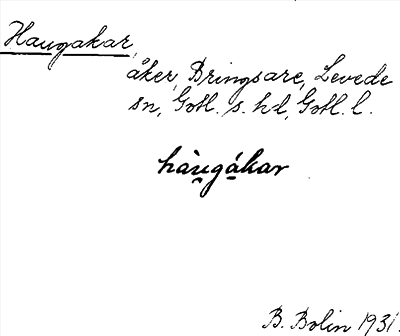 Haugakar,
åker, Bringsare, Levede
sn, Gotl. s. hd, Gotl. l.
hàugákar
B. Bolin 1931.